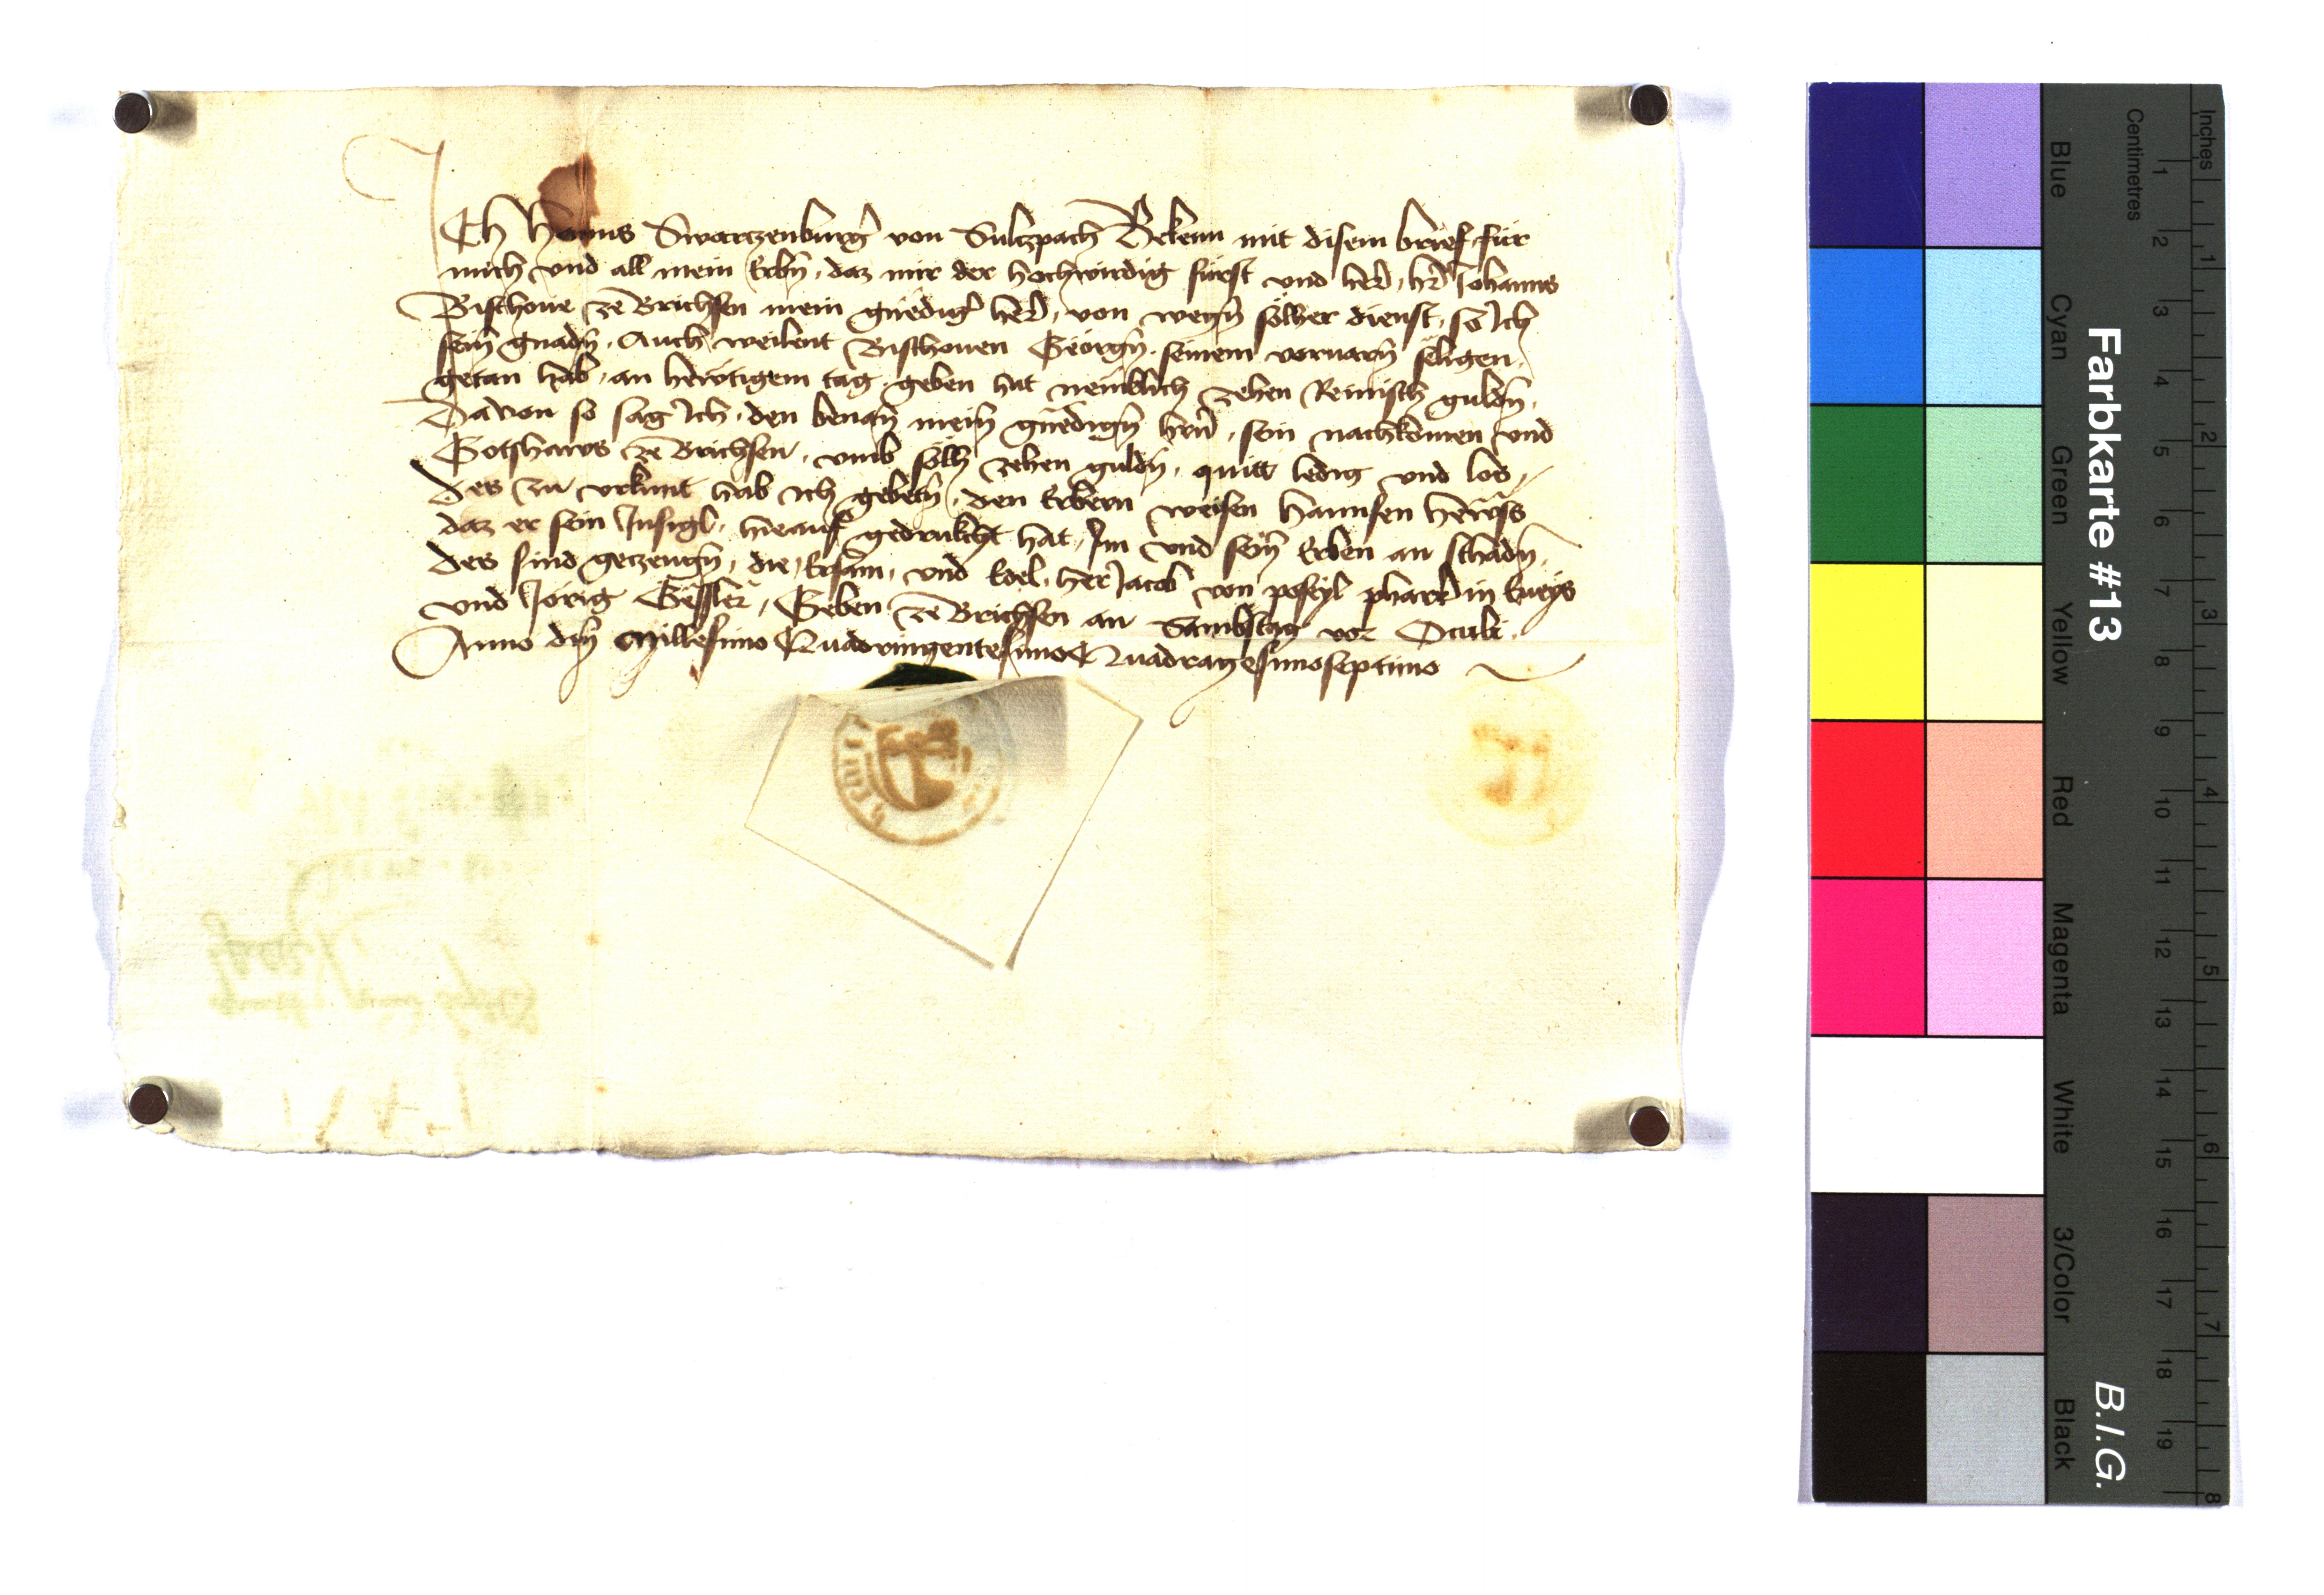 ICh Hanns Swartzenburg̉ von Sultzpach Bekenn mit disem brief, für
mich vnd all mein Erbn̄, daz mir der hochwirdig fürst vnd her̉, hr̉ Johanns
Bischoue ze Brichsen mein gnedig̉ her̉, von wegn̄ sölher dienst, so Ich
sein̄ gnadn̄, Auch weilent Bischouen Georgn̄ seinem voruarn̄ seligen,
getan hab, an hewtigem tag geben hat nemblich zehen Reinisch guldn̄,
Dauon so sag Ich, den benan̄ mein̄ gnedign̄ hrn̄, sein nachkomen vnd
Gotshaws ze Brichsen, vmb sölh zehen guldn̄, quitt ledig vnd los,
Des zu vrkunt hab ich gebetn̄, den Erbern weisen Hannsen
daz er sein Insigl, hieauf gedrukcht hat, Im vnd sein̄ Erben an schadn̄,
Des sind getzeugn̄, die Ersam, vnd Edel, her Jacob von phar̉ in
vnd Jörig Gessler, Geben ze Brichsen an Sambstag vor Oculi,
Anno dm̄ Millesimo Quadringentesimo Quadragesimoseptimo
Farbkarte #13
B.I.G.
Inches
Centimetres
1 2 3 4 5 6 7 8
1 2 3 4 5 6 7 8 9 10 11 12 13 14 15 16 17 18 19
Blue
Cyan
Green
Yellow
Red
Magenta
White
3/Color
Black